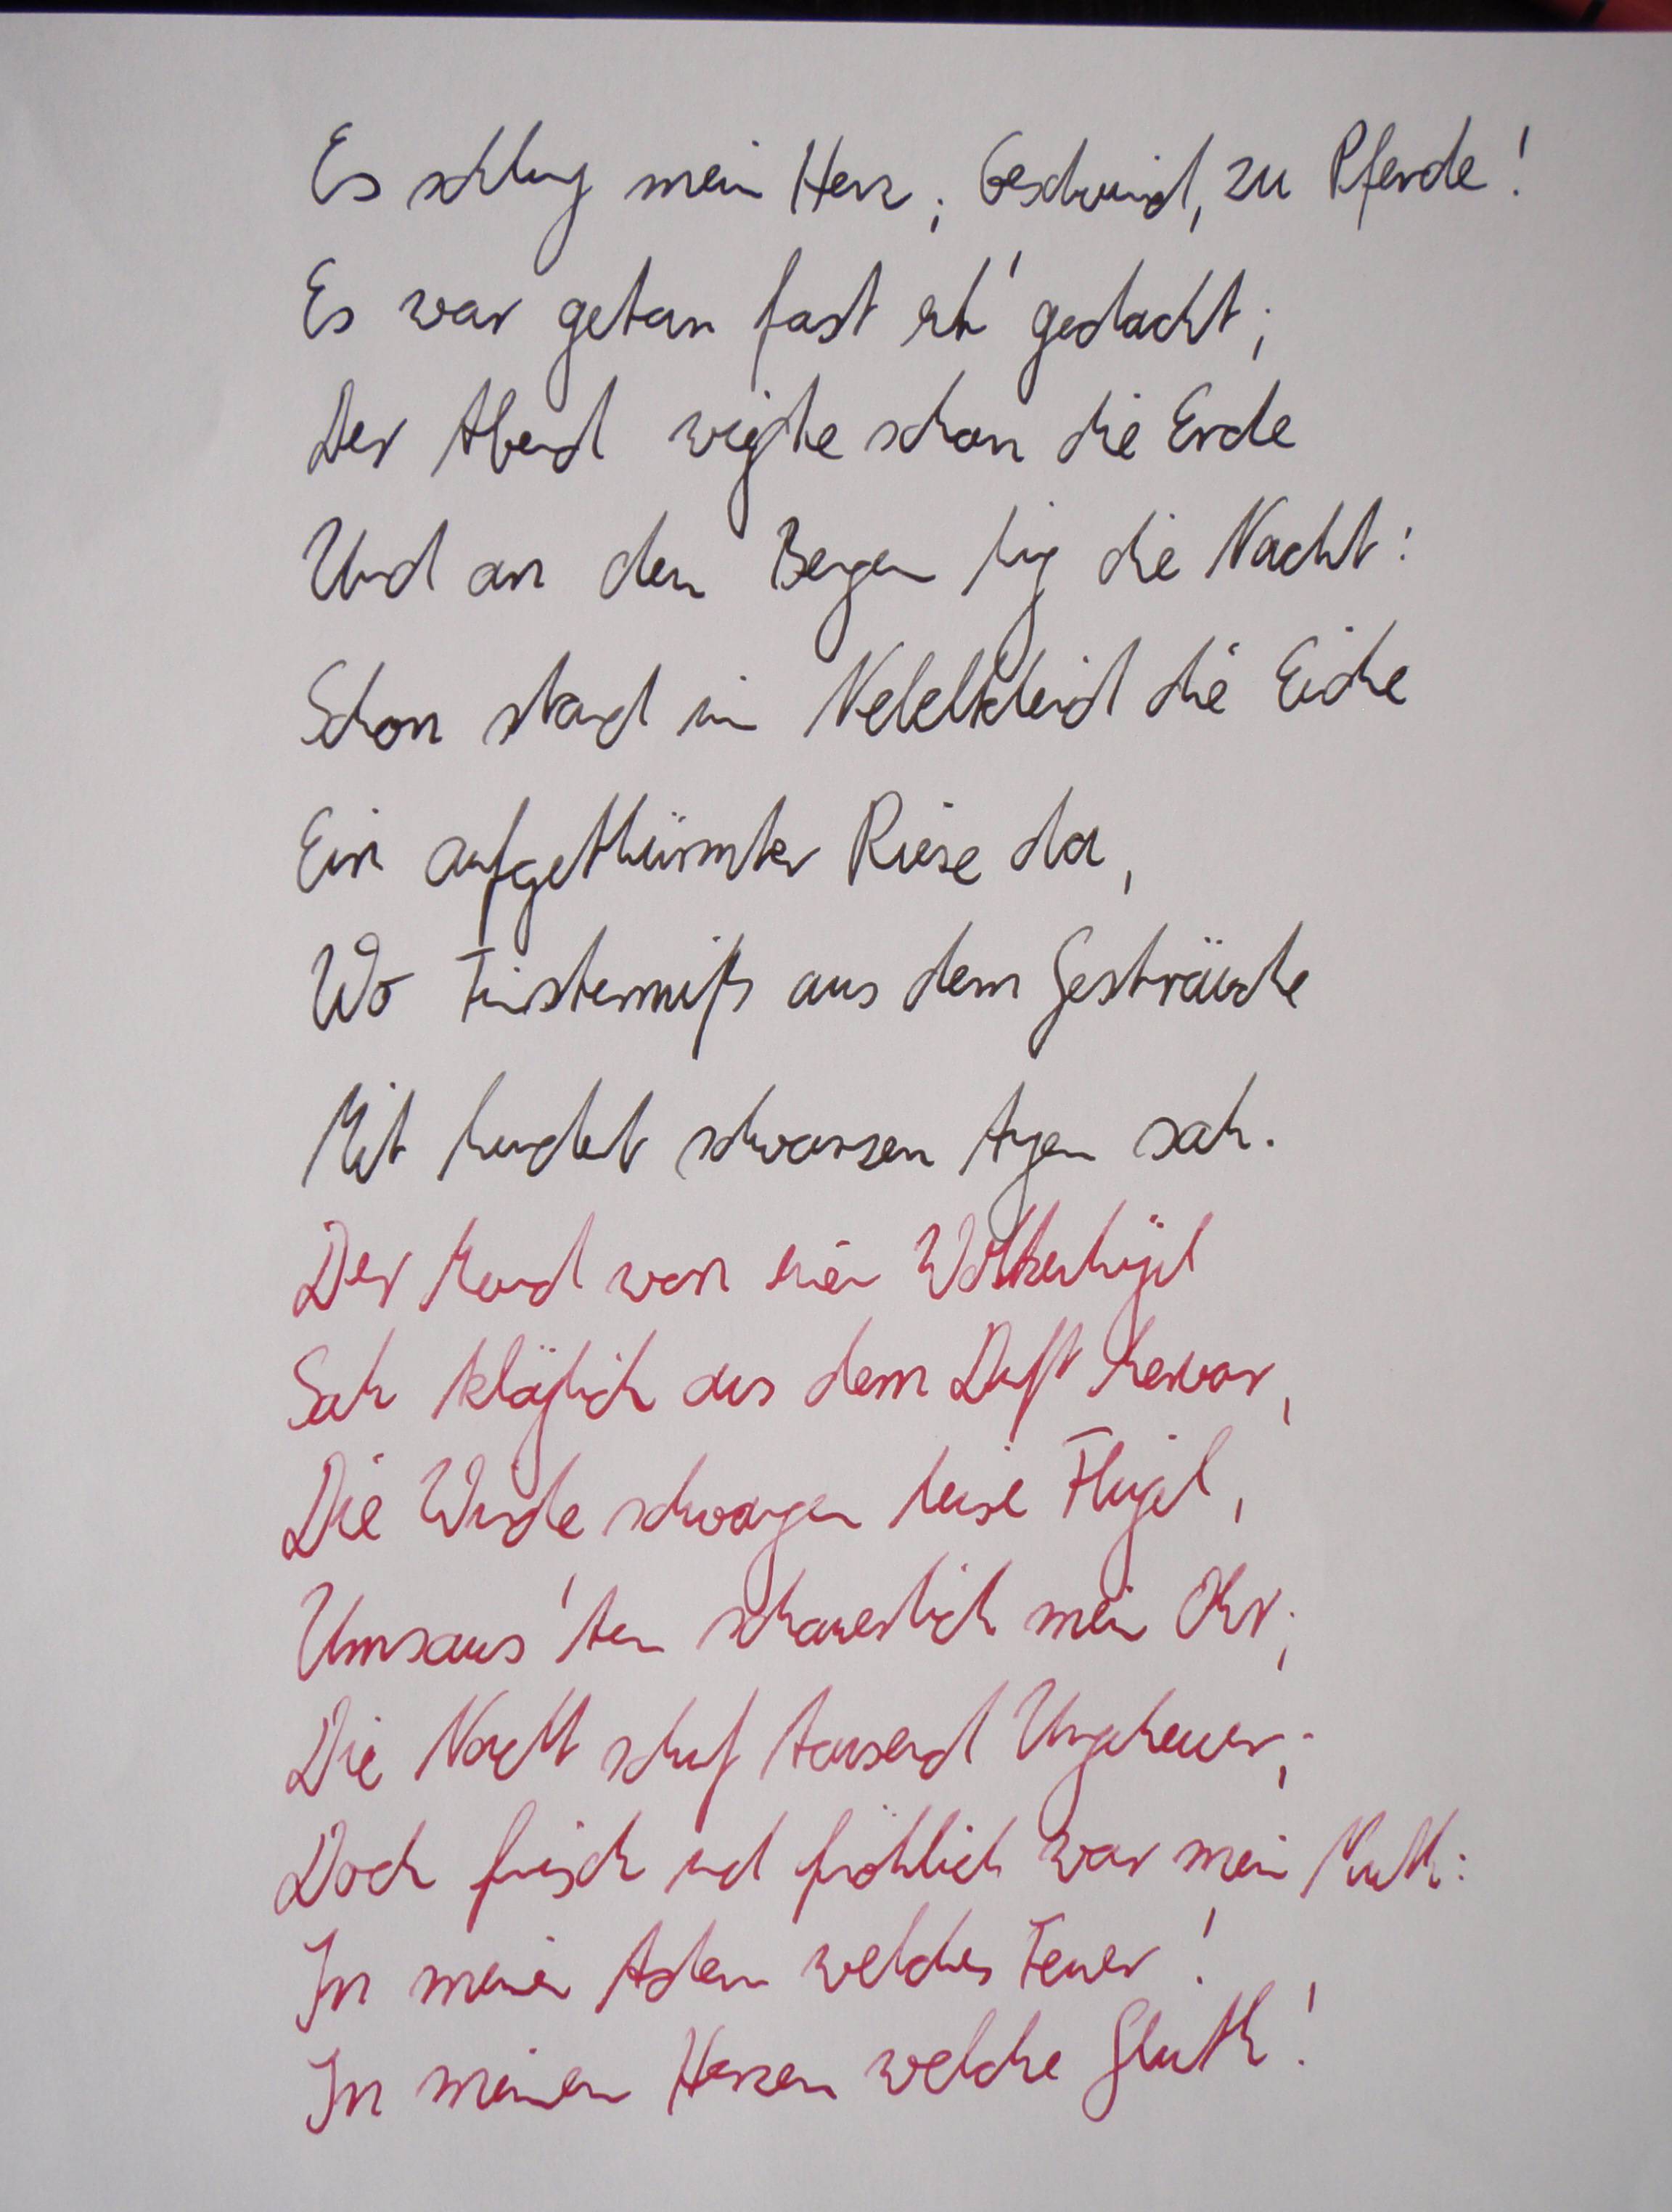 Es schlug mein Herz; Geschwind, zu Pferde!
Es war getan fast eh' gedacht;
Der Abend wiegte schon die Erde
Und an den Bergen hing die Nacht:
Schon stand im Nebelkleid die Eiche
Ein aufgethürmter Riese da,
Wo Finsterniß aus dem Gesträuche
Mit hundert schwarzen Augen sah.
Der Mond von einem Wolkenhügel
Sah kläglich aus dem Duft hervor,
Die Winde schwangen leise Flügel,
Umsaus'ten schauerlich mein Ohr;
Die Nacht schuf tausend Ungeheuer;
Doch frisch und fröhlich war mein Muth:
In meinen Adern welches Feuer!
In meinem Herzen welche Gluth!